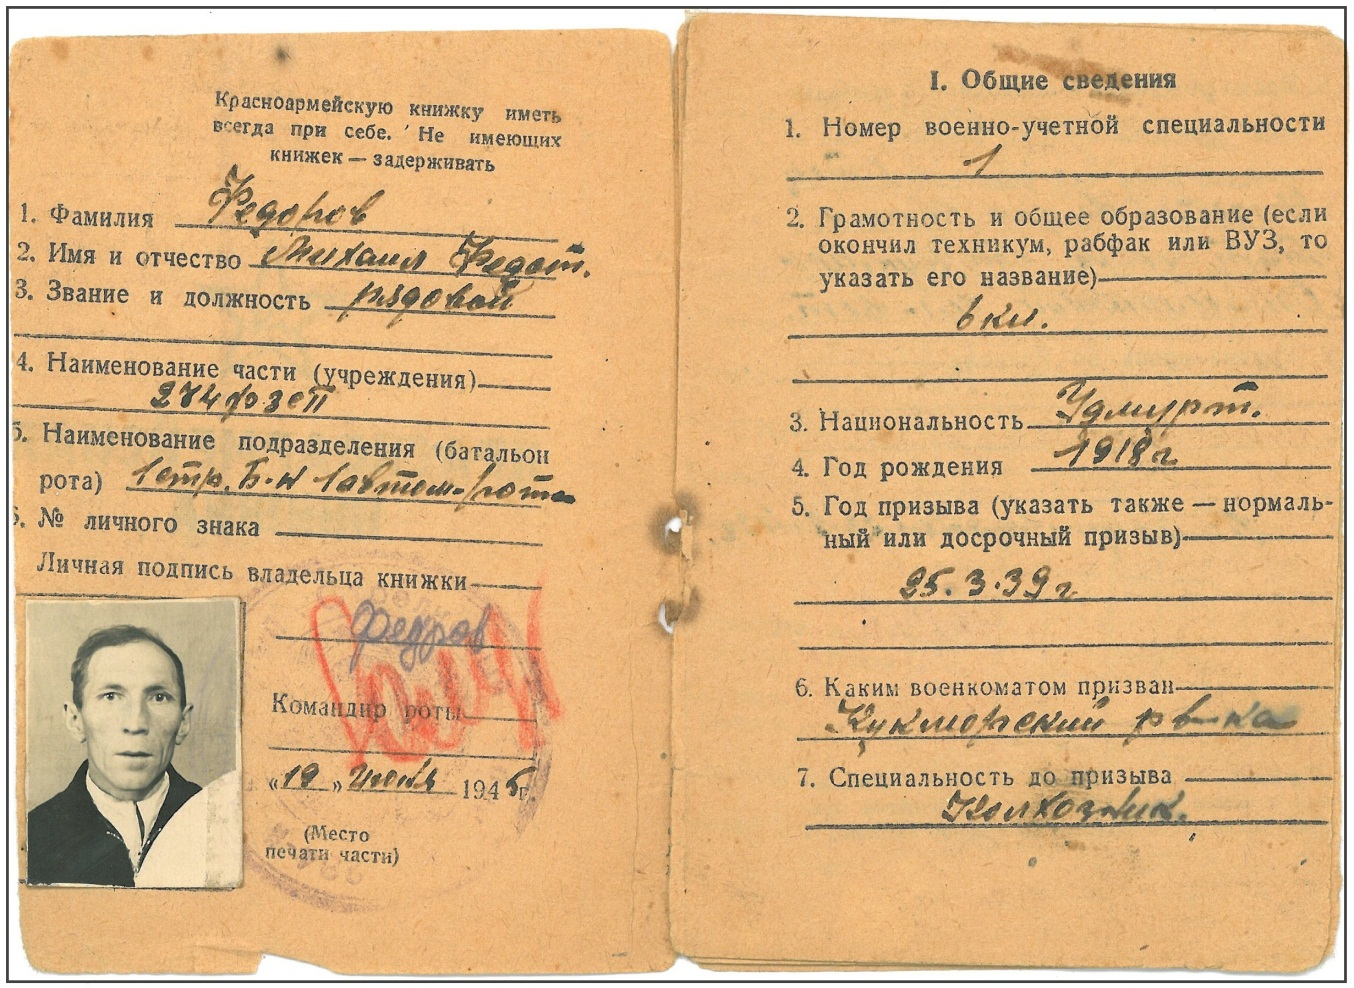 Красноармейскую книжку иметь
всегда при себе. Не имеющих
книжек — задерживать
1. Фамилия Федоров
2. Имя и отчество Михаил Федот.
3. Звание и должность рядовой
4. Наименование части (учреждения)
274 фзсп
5. Наименование подразделения (батальон
рота) 1 стр. Б-н 1 автом. рота
6. № личного знака
Личная подпись владельца книжки
Федров
Командир роты
«19» июня 1945 г.
(Место
печати части)
I. Общие сведения
1. Номер военно-учетной специальности
1
2. Грамотность и общее образование (если
окончил техникум, рабфак или ВУЗ, то
указать его название)
6 кл.
3. Национальность Удмурт.
4. Год рождения 1918 г
5. Год призыва (указать также — нормаль-
ный или досрочный призыв)
25.3.39 г
6. Каким военкоматом призван
Кукморский рв-ка
7. Специальность до призыва
Колхозник.